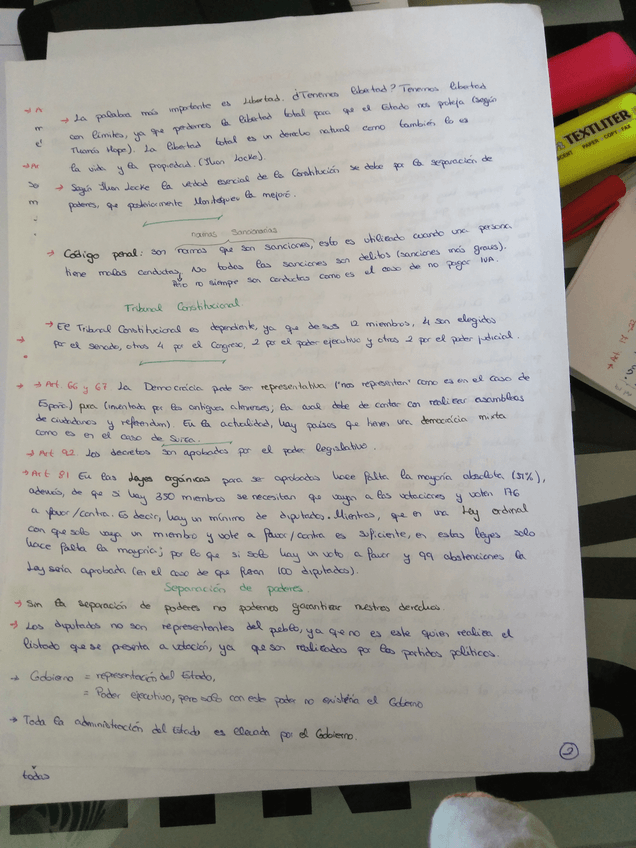 → La palabra más importante es Libertad. ¿Tenemos libertad? Tenemos libertad
con límites, ya que perdemos la libertad total para que el Estado nos proteja (según
Thomas Hope). La libertad total es un derecho natural como también lo es
la vida y la propiedad. (Jhon Locke).
→ Según Jhon Locke la verdad esencial de la Constitución se debe por la separación de
poderes, que posteriormente Montesquieu la mejoró.
normas sancionarias
→ Código penal: son normas que son sanciones, esto es utilizado cuando una persona
tiene malas conductas, No todas las sanciones son delitos (sanciones más graves).
no siempre son conductas como es el caso de no pagar IVA.
Tribunal Constitucional
→ El Tribunal Constitucional es dependiente, ya que de sus 12 miembros, 4 son elegidos
por el senado, otros 4 por el Congreso, 2 por el poder ejecutivo y otros 2 por el poder judicial.
→ Art. 66 y 67 La Democracia puede ser representativa ("nos representan" como es en el caso de
España) pura (inventada por los antiguos atenienses; la cual debe de contar con realizar asambleas
de ciudadanos y referendum). En la actualidad, hay países que tienen una democracia mixta
como es en el caso de Suiza.
→ Art. 82. Los decretos son aprobados por el poder legislativo.
→ Art 81 En las Leyes orgánicas para ser aprobadas hace falta la mayoría absoluta (51%),
además, de que si hay 350 miembros se necesitan que vayan a las votaciones y voten 176
a favor/contra. Es decir, hay un mínimo de diputados. Mientras, que en una Ley ordinal
con que solo vaya un miembro y vote a favor/contra es suficiente, en estas leyes solo
hace falta la mayoría; por lo que si solo hay un voto a favor y 99 abstenciones la
Ley sería aprobada (en el caso de que fueran 100 diputados).
Separación de poderes
→ Sin la separación de poderes no podemos garantizar nuestros derechos.
→ Los diputados no son representantes del pueblo, ya que no es este quien realiza el
listado que se presenta a votación, ya que son realizados por los partidos políticos.
→ Gobierno = representación del Estado,
= Poder ejecutivo, pero solo con este poder no existiría el Gobierno
→ Toda la administración del Estado es llevada por el Gobierno.
2
todas
TEXTLITER
PAPER · COPY · FAX